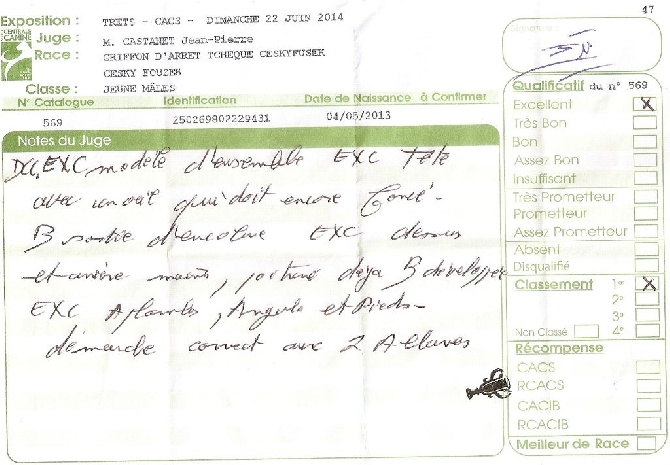 47
Exposition : TRETS - CACS - DIMANCHE 22 JUIN 2014
Juge : M. CASTANET Jean-Pierre
Race : GRIFFON D'ARRET TCHEQUE CESKYFUSEK
CESKY FOUZEK
Classe : JEUNE MÂLES
CENTRALE CANINE
N° Catalogue Identification Date de Naissance à Confirmer
569 250269802229431 04/05/2013
Notes du Juge
EXC modèle d'ensemble EXC Tête
avec un oeil qui doit encore foncé -
B sortie d'encolure EXC dessus
et arrière mains, poitrine déjà B développée
EXC Aplombs, Angule et Pieds -
démarche correct aux 2 Allures
Signature :
Qualificatif du n° 569
Excellent X
Très Bon
Bon
Assez Bon
Insuffisant
Très Prometteur
Prometteur
Assez Prometteur
Absent
Disqualifié
Classement 1er X
2e
3e
Non Classé 4e
Récompense
CACS
RCACS
CACIB
RCACIB
Meilleur de Race